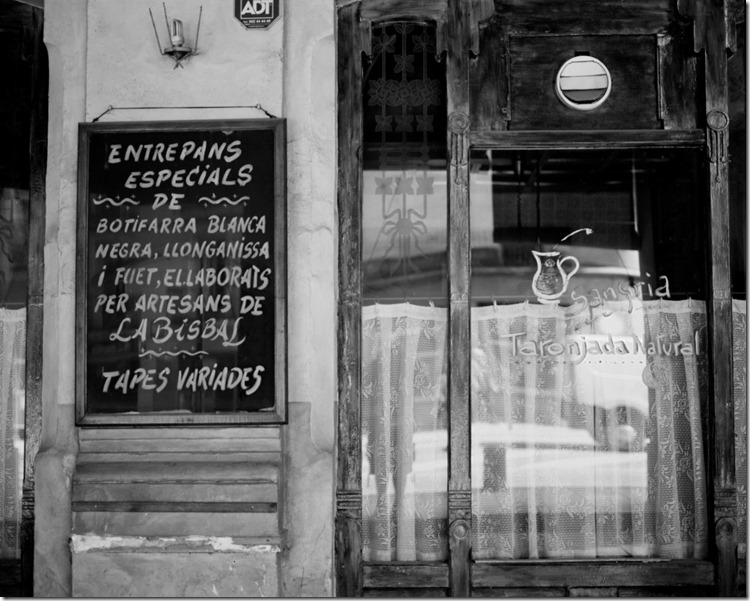 ADT
ENTREPANS
ESPECIALS
DE
BOTIFARRA BLANCA
NEGRA, LLONGANISSA
I FUET, ELLABORATS
PER ARTESANS DE
LA BISBAL
TAPES VARIADES
Sangria
Taronjada Natural